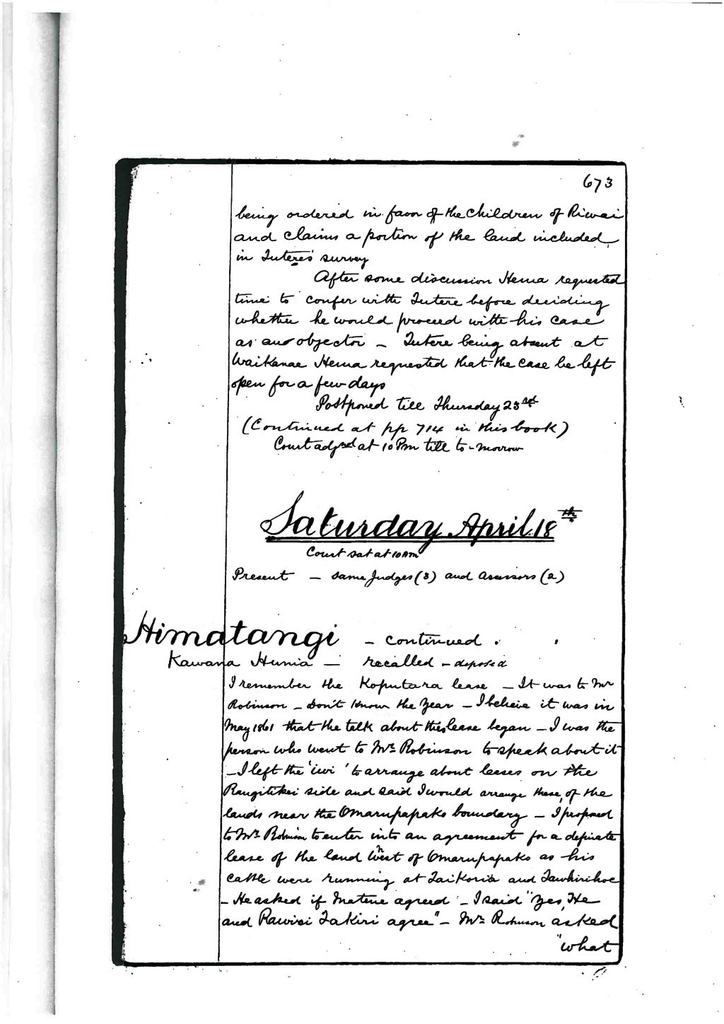 673
being ordered in favor of the children of Riwai
and claims a portion of the land included
in Intere's survey
After some discussion Hema requested
time to confer with Intere before deciding
whether he would proceed with his case
as an objector – Intere being absent at
Waikanae Hema requested that the case be left
open for a few days
Postponed till Thursday 23rd
(Continued at pp 714 in this book)
Court adjd at 10 Pm till to-morrow
Saturday April 18th
Court sat at 10 Am
Present – same Judges (3) and Assessors (2)
Himatangi – continued.
Kawana Hunia – recalled – deposed
I remember the Koputara lease – It was to Mr
Robinson – don't know the year – I believe it was in
May 1861 that the talk about this lease began – I was the
person who went to Mr Robinson to speak about it
– I left the 'iwi' to arrange about leases on the
Rangitikei side and said I would arrange those, of the
lands near the Omarupapako boundary – I proposed
to Mr Robinson to enter into an agreement for a definate
lease of the land West of Omarupapako as his
cattle were running at Taikoria and Tawhirihoe
– He asked if Matene agreed – I said "Yes, He
and Rawiri Takiri agree" – Mr Robinson asked
"what